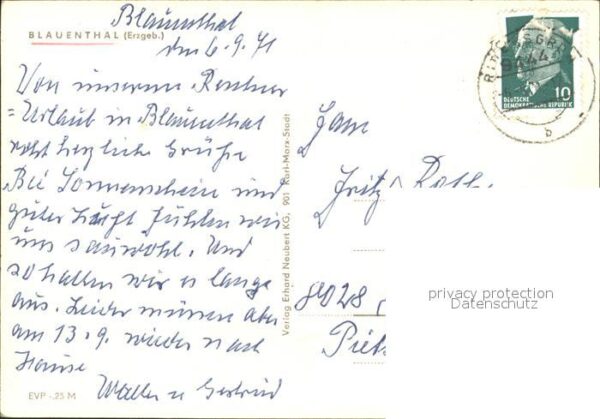 BLAUENTHAL (Erzgeb.)
Blauenthal
den 6.9.71
Von unserem Rentner
=Urlaub in Blauenthal
recht herzliche Grüße
Bei Sonnenschein und
guter Luft fühlen wir
uns sauwohl. Und
so halten wir es lange
aus. Leider müssen aber
am 13.9. wieder nach
Hause
Walter u Gertrud
EVP -.25 M
Verlag Erhard Neubert KG, 901 Karl-Marx-Stadt
10
DEUTSCHE
DEMOKRATISCHE REPUBLIK
b
Fam
Fritz
8028
privacy protection
Datenschutz